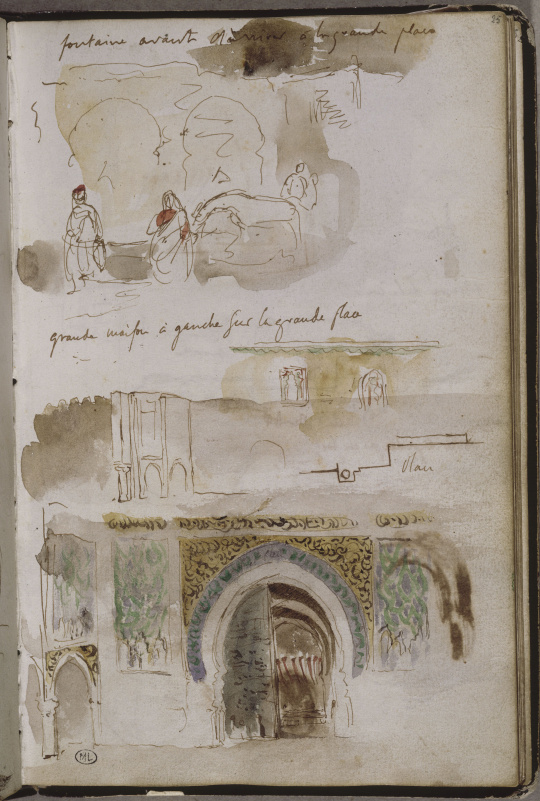 fontaine avant d'arriver à la grande place
25
grande maison à gauche sur la grande place
Plan
ML